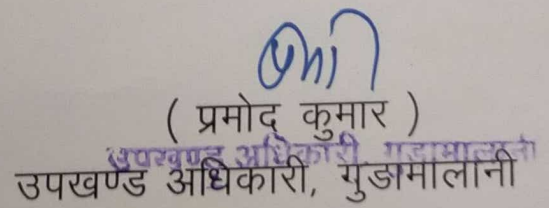 ( प्रमोद कुमार )
उपखण्ड अधिकारी गुडामालानी
उपखण्ड अधिकारी, गुडामालानी